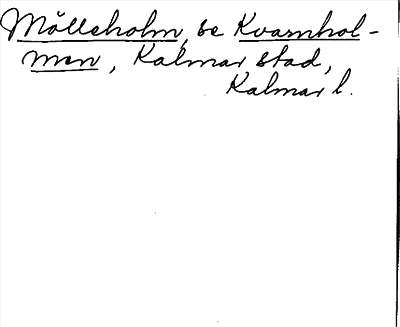 Mölleholm, se Kvarnhol-
men, Kalmar stad,
Kalmar l.